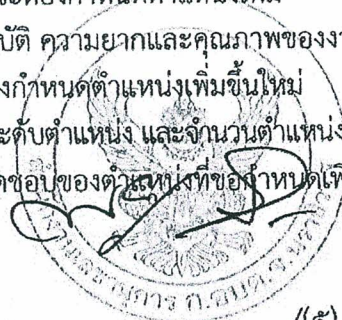 บัติ ความยากและคุณภาพของงา
งกำหนดตำแหน่งเพิ่มขึ้นใหม่
ะดับตำแหน่ง และจำนวนตำแหน่ง
ดชอบของตำแหน่งที่ขอกำหนดเพิ่
/(๕)